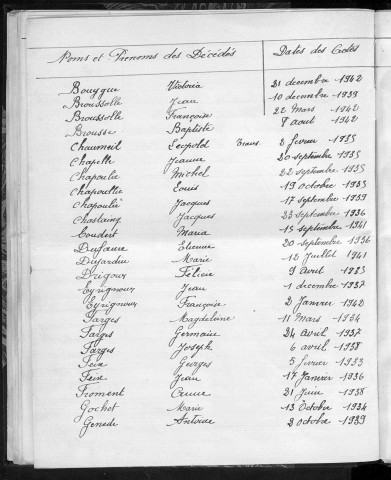 Noms et Prénoms des Décédés Dates des Actes
Bouygue Victoria 21 decembre - 1942
Broussolle Jean 10 decembre - 1939
Broussolle Françoise 22 Mars - 1942
Brousse Baptiste 7 aout - 1942
Chaumeil Léopold 2 fevrier - 1935
Chapelle Jeanne 20 septembre - 1935
Chapoulie Michel 22 septembre - 1935
Chapoulie Louis 19 octobre - 1935
Chapoulie Jacques 17 septembre 1939
Chastaing Jacques 23 septembre - 1936
Coudert Maria 15 septembre - 1941
Dufaure Etienne 20 septembre - 1936
Dujardin Marie 12 juillet 1941
Drigour Félicie 9 avril - 1935
Eyrignoux Jean 1 decembre - 1937
Eyrignoux Françoise 2 Janvier - 1942
Farges Magdeleine 11 Mars - 1934
Farges Germaine 24 avril - 1937
Farges Joseph 6 avril - 1938
Feix Georges 5 fevrier - 1933
Feix Jean 17 Janvier - 1936
Froment 21 Juin - 1938
Gochet Marie 13 Octobre - 1934
Genede Antoine 2 octobre - 1939